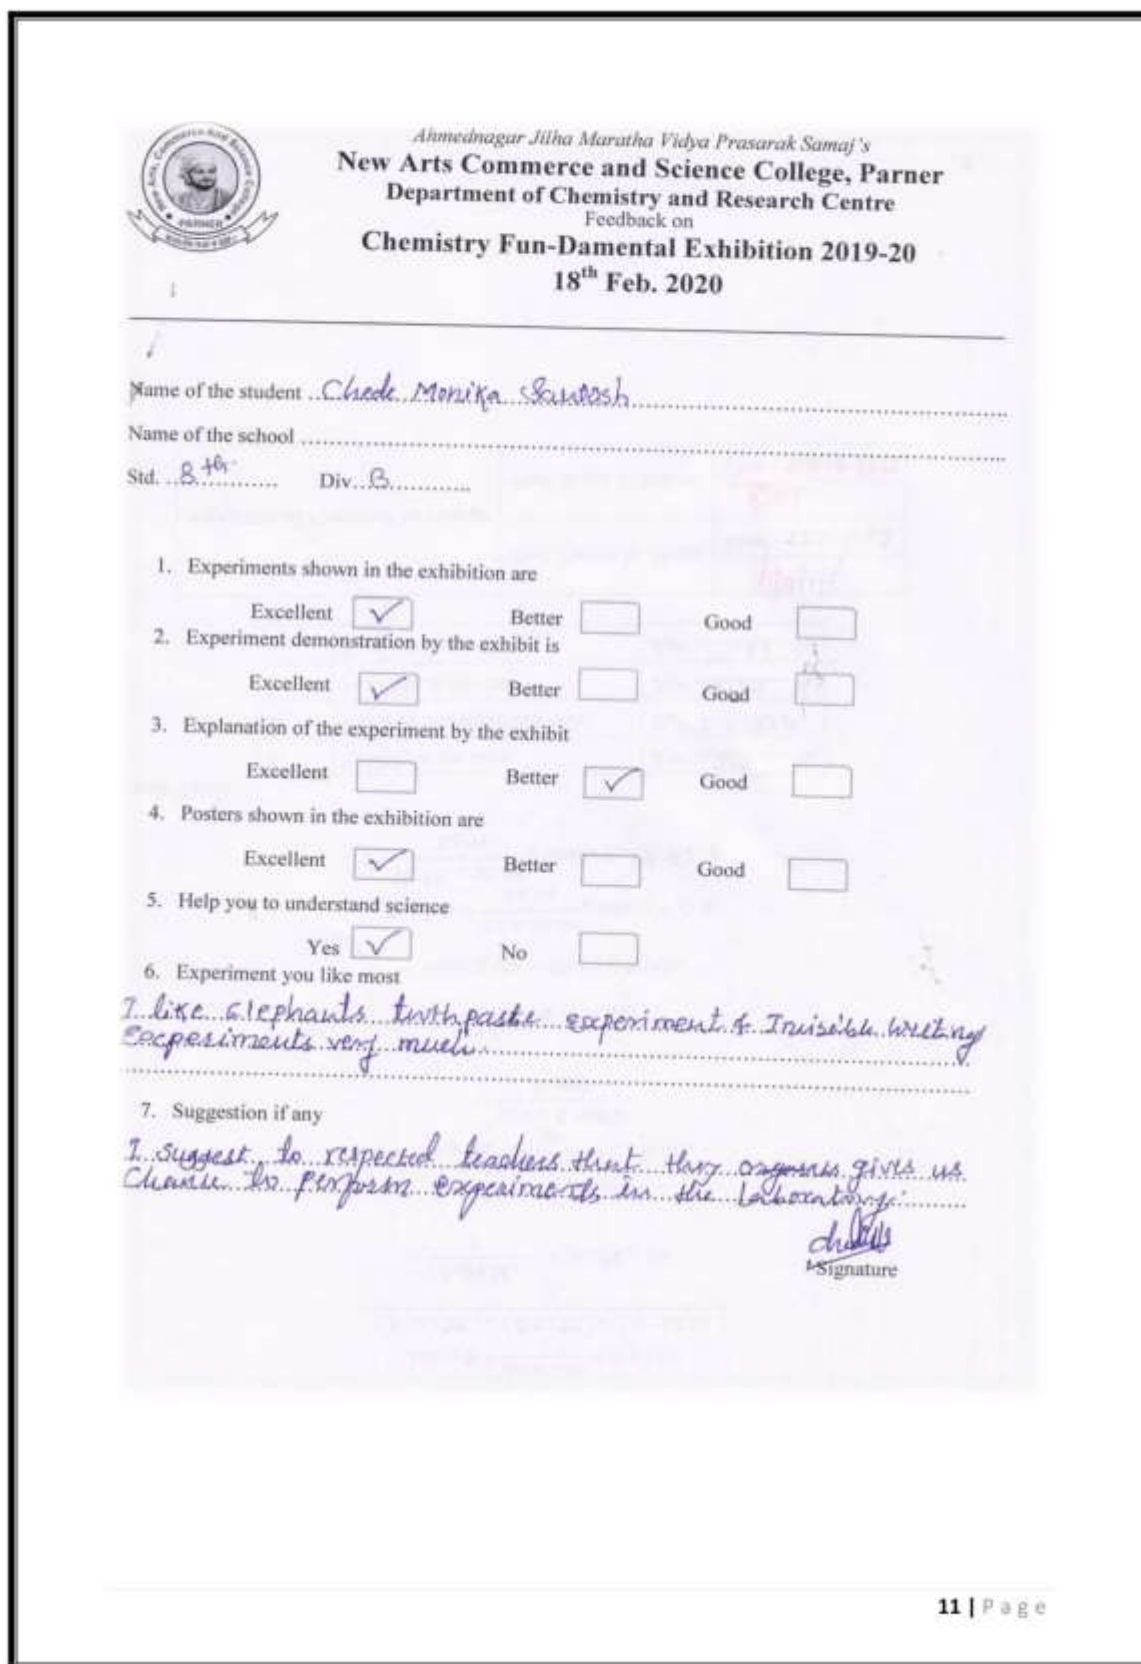 New Arts, Commerce And Science College
PARNER
Ahmednagar Jilha Maratha Vidya Prasarak Samaj's
New Arts Commerce and Science College, Parner
Department of Chemistry and Research Centre
Feedback on
Chemistry Fun-Damental Exhibition 2019-20
18th Feb. 2020
Name of the student Chede Monika Santosh
Name of the school
Std. 8th Div. B
1. Experiments shown in the exhibition are
Excellent ✓ Better Good
2. Experiment demonstration by the exhibit is
Excellent ✓ Better Good
3. Explanation of the experiment by the exhibit
Excellent Better ✓ Good
4. Posters shown in the exhibition are
Excellent ✓ Better Good
5. Help you to understand science
Yes ✓ No
6. Experiment you like most
I like Elephants experiment & writing
experiments very much
7. Suggestion if any
I suggest to respected teachers that they gives us
Chance to perform experiments in the Laboratory.
Signature
11 | Page